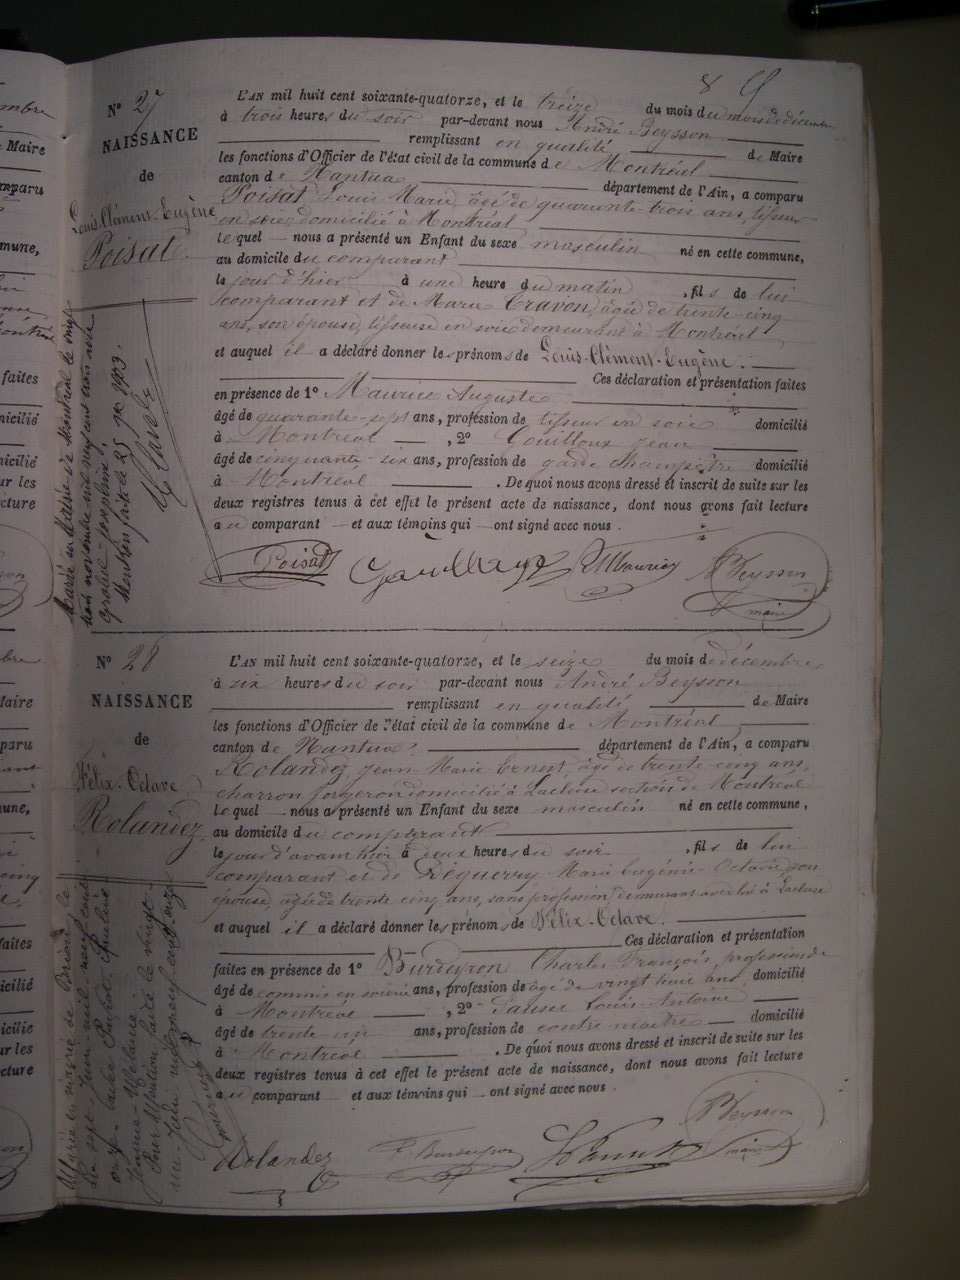 8 G
N° 27
NAISSANCE
de
Louis-Clément-Eugène
Poisat
L'AN mil huit cent soixante-quatorze, et le treize du mois du mois de décembre
à trois heures du soir par-devant nous André Beysson
remplissant en qualité de Maire
les fonctions d'Officier de l'état civil de la commune de Montréal
canton de Nantua département de l'Ain, a comparu
Poisat Louis Marie, âgé de quarante-trois ans, tisseur
en soie, domicilié à Montréal
lequel nous a présenté un Enfant du sexe masculin né en cette commune,
au domicile du comparant
le jour d'hier à une heure du matin, fils de lui
comparant et de Marie Cravon, âgée de trente-cinq
ans, son épouse, tisseuse en soie demeurant à Montréal
et auquel il a déclaré donner les prénoms de Louis-Clément-Eugène.
Ces déclaration et présentation faites
en présence de 1° Maurice Auguste
âgé de quarante-sept ans, profession de tisseur en soie domicilié
à Montréal, 2° Gouilloux Jean
âgé de cinquante-six ans, profession de garde champêtre domicilié
à Montréal. De quoi nous avons dressé et inscrit de suite sur les
deux registres tenus à cet effet le présent acte de naissance, dont nous avons fait lecture
au comparant et aux témoins qui ont signé avec nous.
Poisat Maurice Beysson
maire
Marié en Mairie de Montréal le vingt
trois novembre mil neuf cent trois avec
Mention faite le 25 9bre 1903.
N° 28
NAISSANCE
de
Félix-Octave
Rolandez
L'AN mil huit cent soixante-quatorze, et le seize du mois de décembre
à six heures du soir par-devant nous André Beysson
remplissant en qualité de Maire
les fonctions d'Officier de l'état civil de la commune de Montréal
canton de Nantua département de l'Ain, a comparu
Rolandez, Jean-Marie Ernest, âgé de trente-cinq ans,
charron forgeron domicilié à Lacluse section de Montréal
Lequel nous a présenté un Enfant du sexe masculin né en cette commune,
au domicile du comparant
le jour d'avant hier à deux heures du soir, fils de lui
comparant et de Marie Eugénie-Octavie son
épouse, âgée de trente cinq ans, sans profession, demeurant avec lui à Lacluse
et auquel il a déclaré donner les prénoms de Félix-Octave.
Ces déclaration et présentation
faites en présence de 1° Burdeyron Charles François, profession de
âgé de commis en soierie ans, profession de âgé de vingt huit ans domicilié
à Montréal, 2° Louis Antoine
âgé de trente un ans, profession de contre-maître domicilié
à Montréal. De quoi nous avons dressé et inscrit de suite sur les
deux registres tenus à cet effet le présent acte de naissance, dont nous avons fait lecture
au comparant et aux témoins qui ont signé avec nous.
Rolandez Burdeyron Beysson
maire
Marié en mairie de
le sept Juin mil neuf cent
onze
Jeanne-Mélanie.
Pour Mention faite le vingt-
un Juin mil neuf cent onze